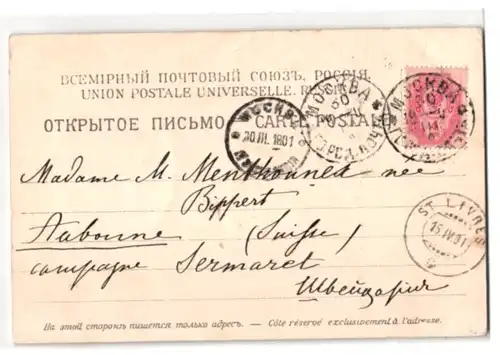 ВСЕМІРНЫЙ ПОЧТОВЫЙ СОЮЗЪ. РОССІЯ.
UNION POSTALE UNIVERSELLE. RUSSIE
ОТКРЫТОЕ ПИСЬМО CARTE POSTALE
МОСКВА
30 III. 1901
МОСКВА
30
МОСКВА
30
Madame M. Menthonnex née
Bippert
Aubonne (Suisse)
campagne Sermaret
Швейцарія
ST. LIVRES
15 IV 01
На этой сторонѣ пишется только адресъ. — Côté réservé exclusivement à l'adresse.